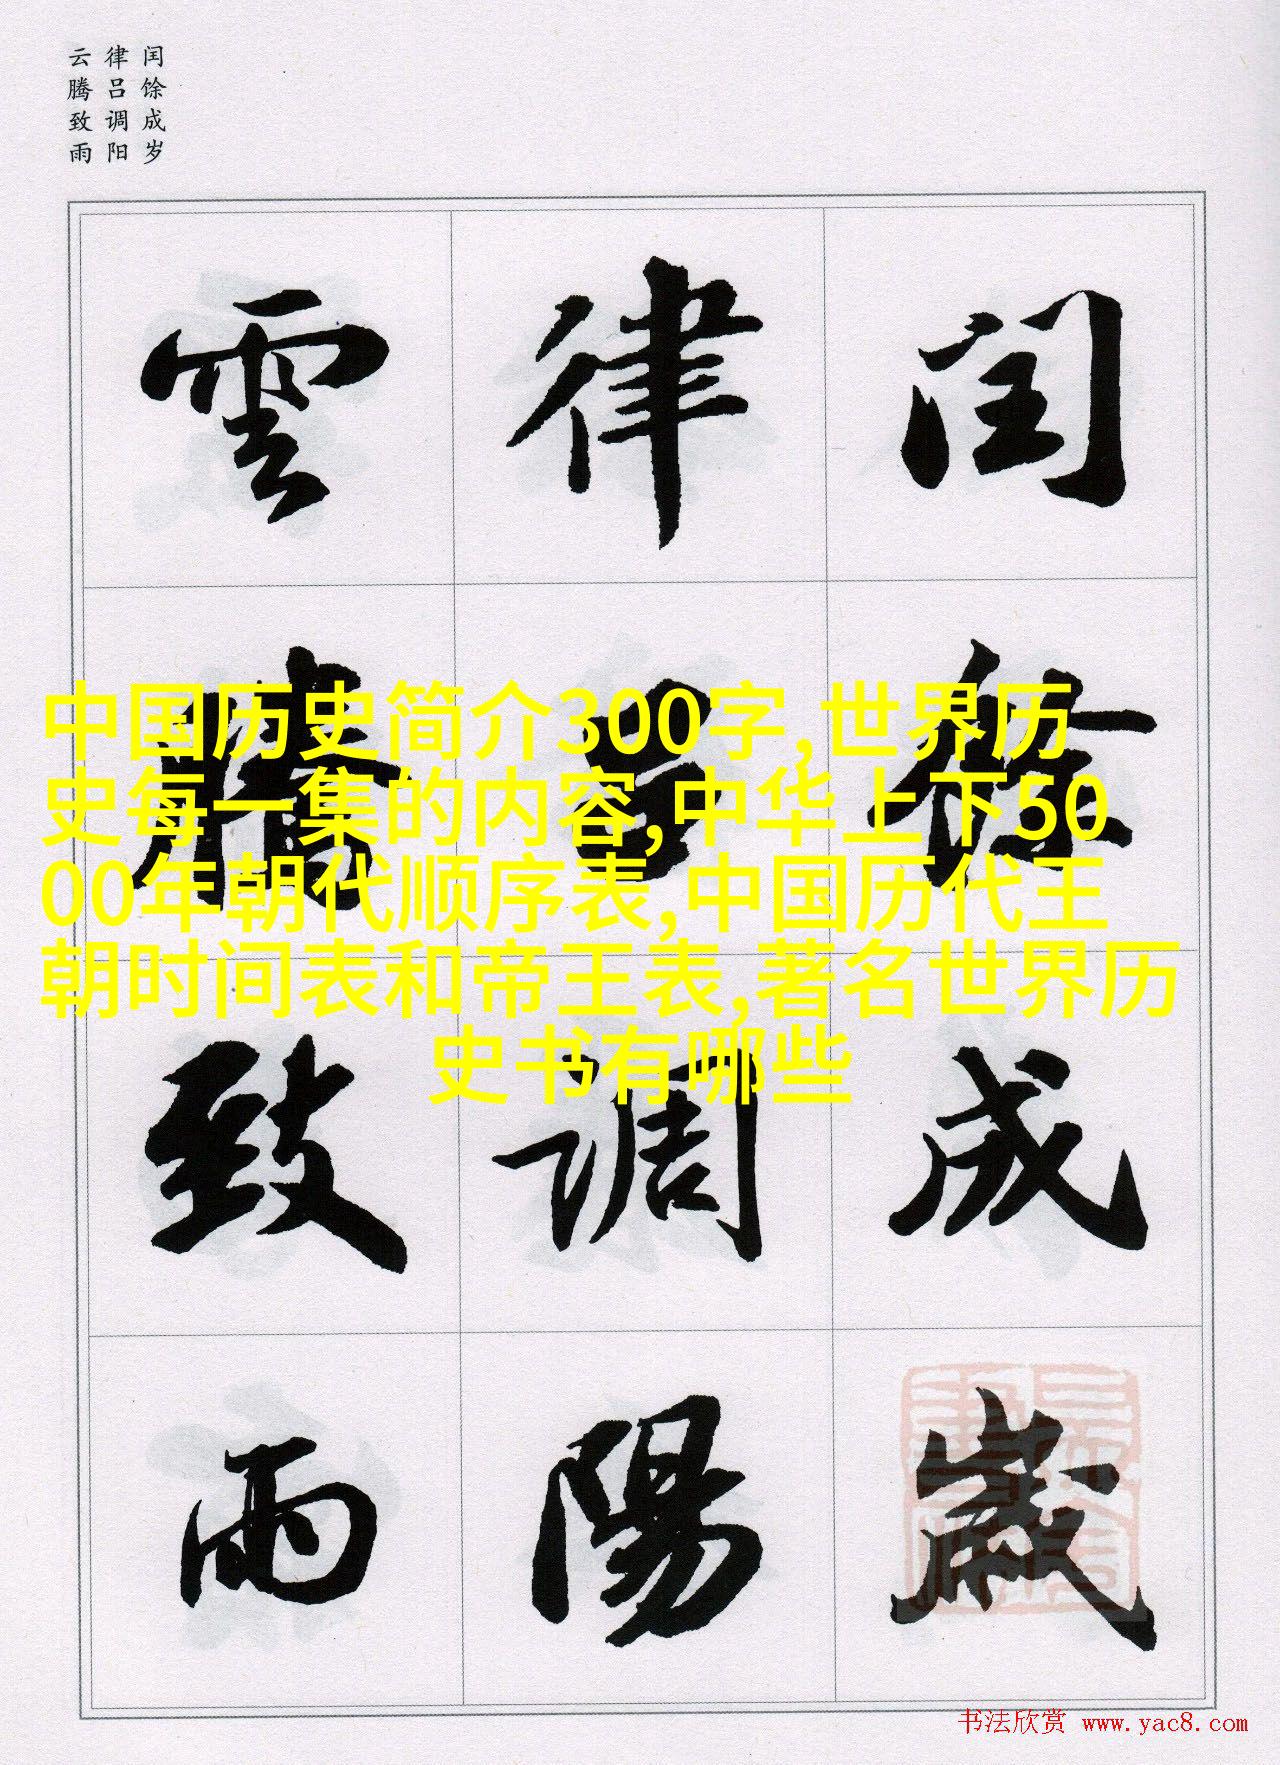 闰馀成岁
律吕调阳
云腾致雨
閏餘成歲
律呂調陽
雲騰致雨
中国历史简介300字,世界历
史每一集的内容,中华上下50
00年朝代顺序表,中国历代王
朝时间表和帝王表,著名世界历
史书有哪些
书法欣赏 www.yac8.com